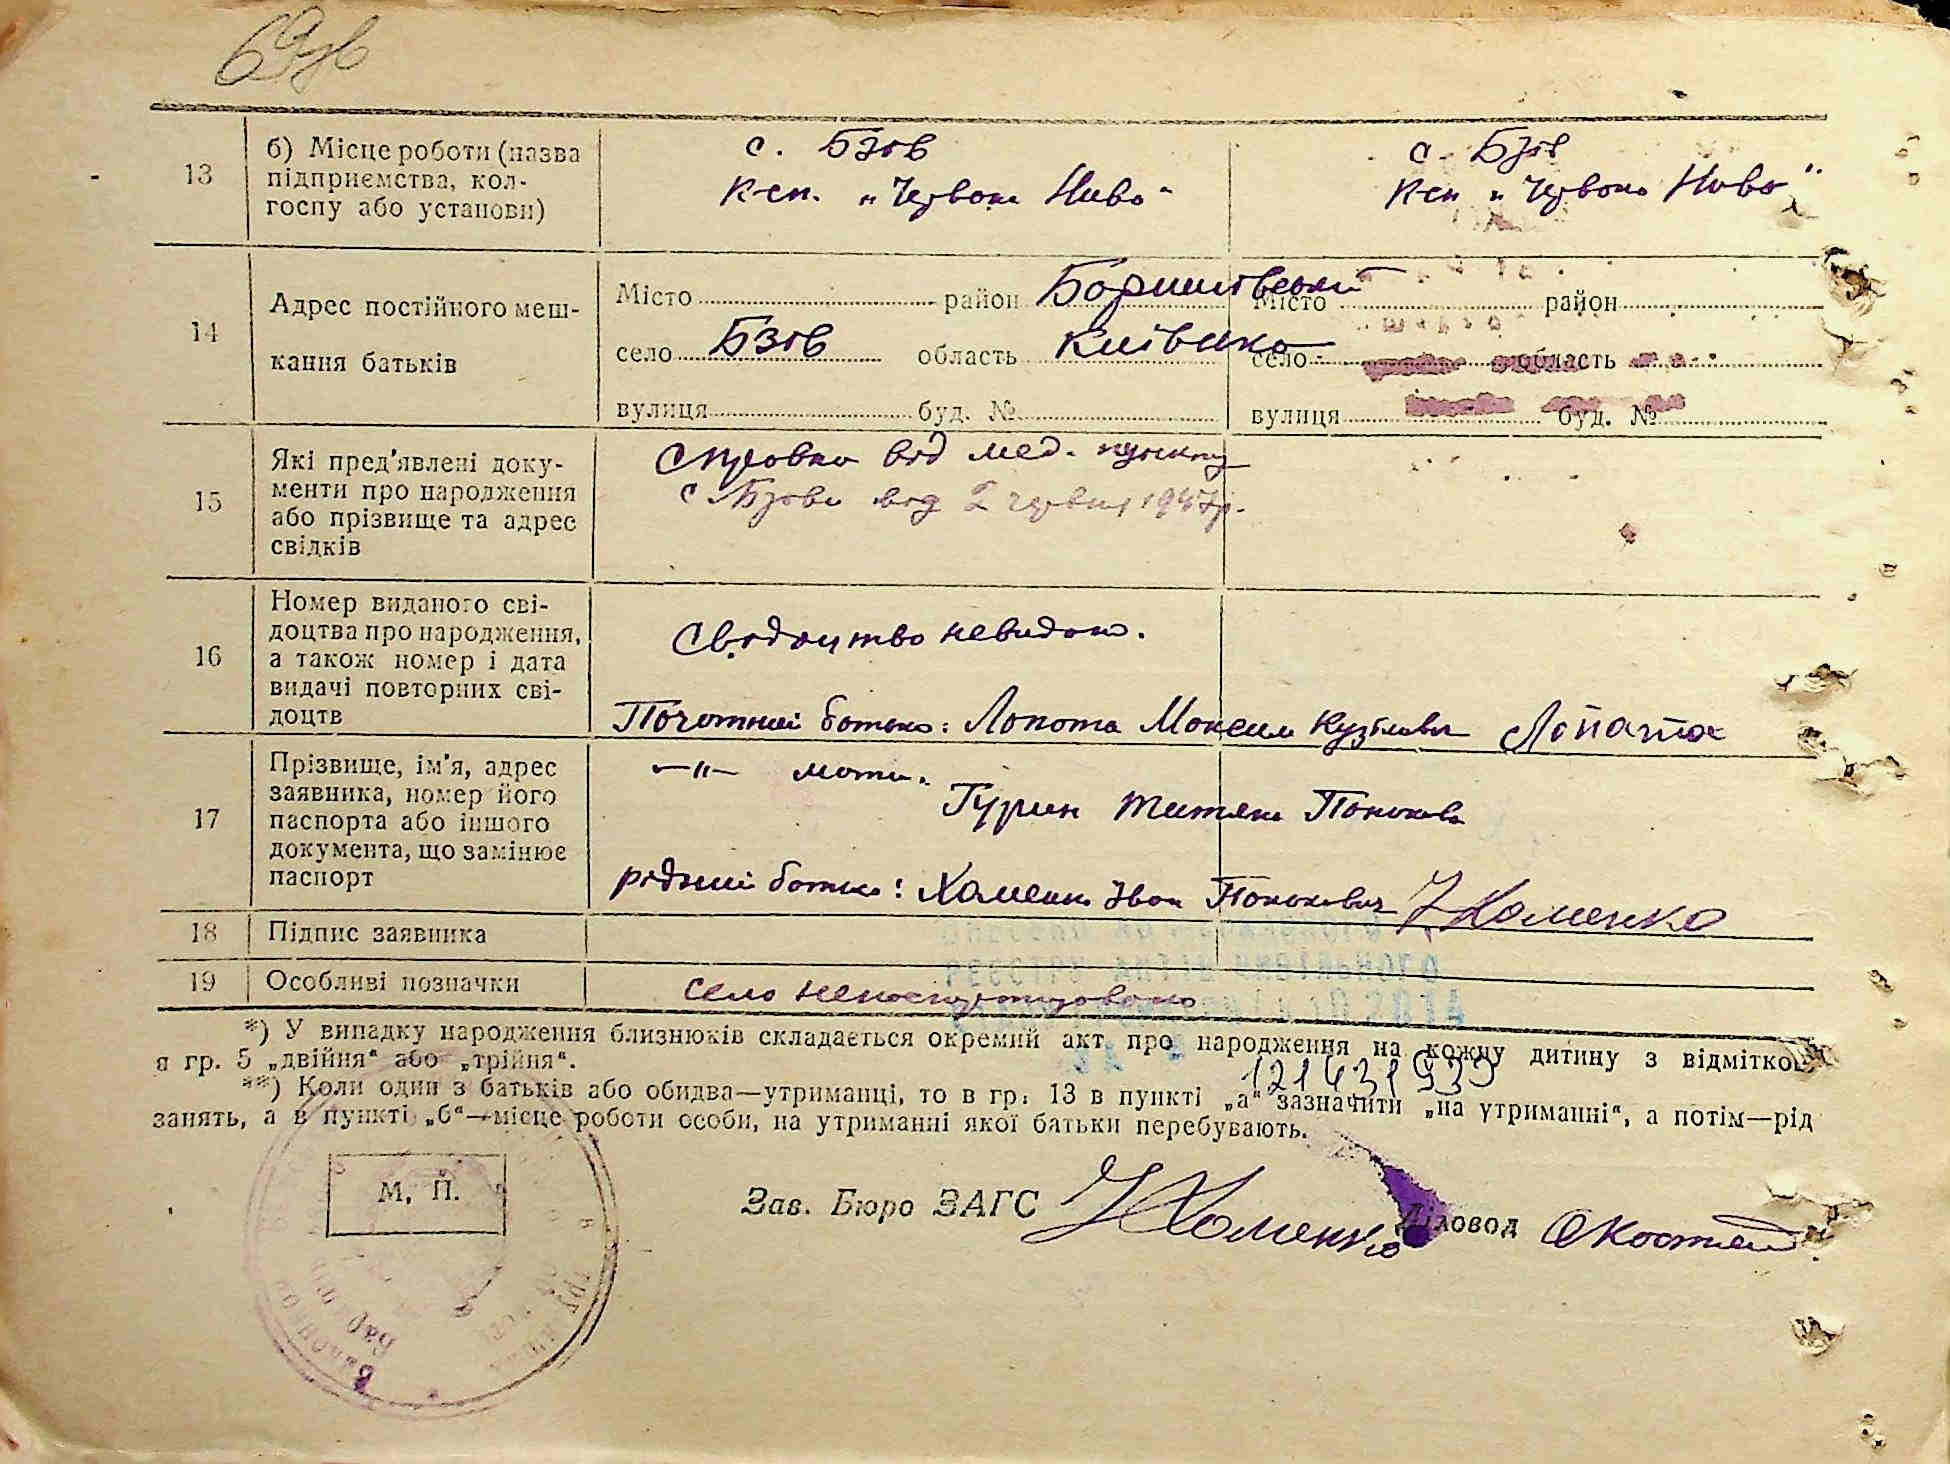 69зв
13
б) Місце роботи (назва
підприємства, кол-
госпу або установи)
с. Бзів
К-сп. „Червона Нива"
с. Бзів
К-сп „Червона Нива"
14
Адрес постійного меш-
кання батьків
Місто район Баришівський
село Бзів область Київська
вулиця буд. №
Місто район
село область
вулиця буд. №
15
Які пред'явлені доку-
менти про народження
або прізвище та адрес
свідків
Справка від мед. пункту
с. Бзова від 2 червня 1947р.
16
Номер виданого сві-
доцтва про народження,
а також номер і дата
видачі повторних сві-
доцтв
Свідоцтво невидано.
Почотний батько: Лопата Максим Кузьмович Лопата
17
Прізвище, ім'я, адрес
заявника, номер його
паспорта або іншого
документа, що замінює
паспорт
—„— мати.
Гурин Титяна
рідний батько: Хоменко Іван Хоменко
18
Підпис заявника
19
Особливі позначки
село непаспортизовано
*) У випадку народження близнюків складається окремий акт про народження на кожну дитину з відміткою
в гр. 5 „двійня“ або „трійня“.
12143193
**) Коли один з батьків або обидва—утриманці, то в гр. 13 в пункті „а“ зазначити „на утриманні“, а потім—рід
занять, а в пункті „б“—місце роботи особи, на утриманні якої батьки перебувають.
М. П.
Зав. Бюро ЗАГС Хоменко Діловод